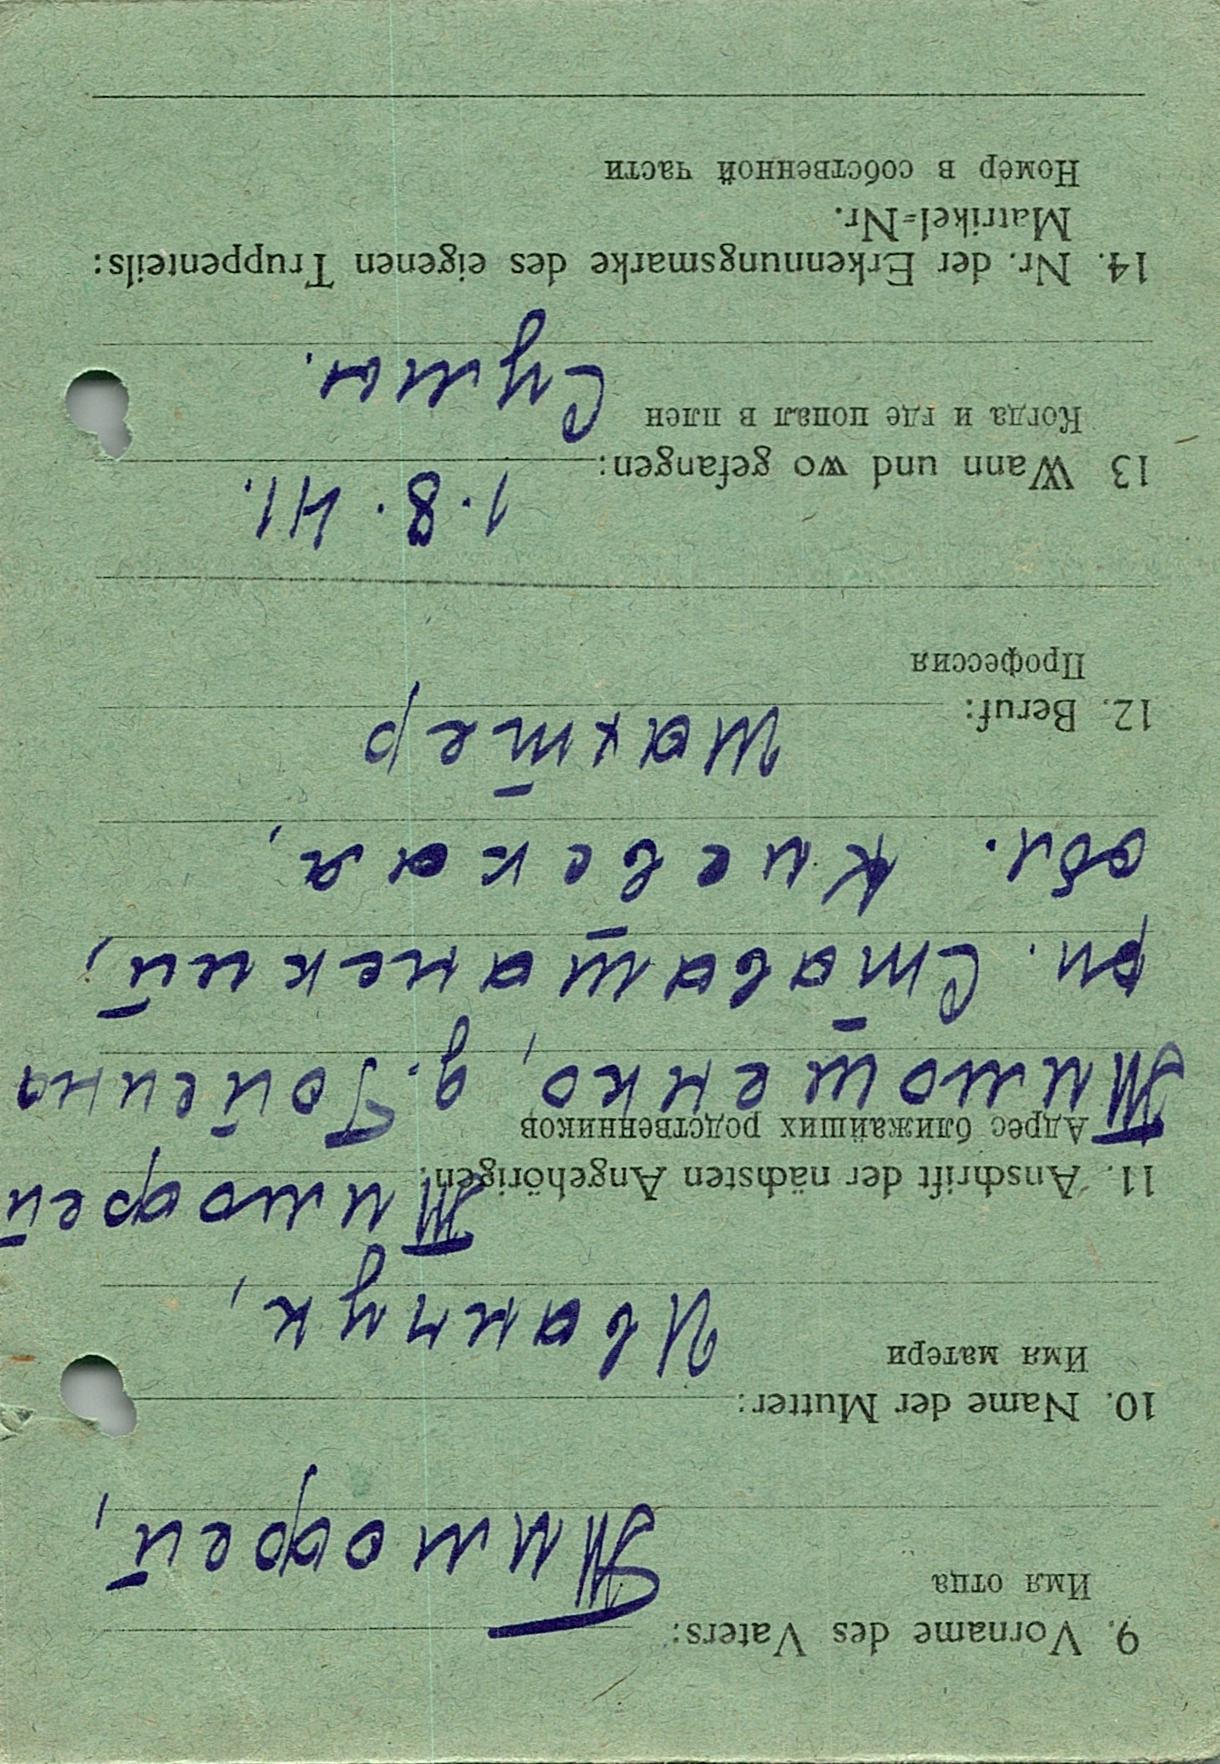 9. Vorname des Vaters:
Имя отца
Тимофей,
10. Name der Mutter:
Имя матери
Иванчук,
11. Anschrift der nächsten Angehörigen:
Тимофей
Адрес ближайших родственников
Тимошенко, д. Гойсина
рн. Ставашанский,
обл. Киевская,
12. Beruf:
Шахтер
Профессия
13 Wann und wo gefangen:
1. 8. 41.
Когда и где попал в плен
Сумы.
14. Nr. der Erkennungsmarke des eigenen Truppenteils:
Matrikel-Nr.
Номер в собственной части